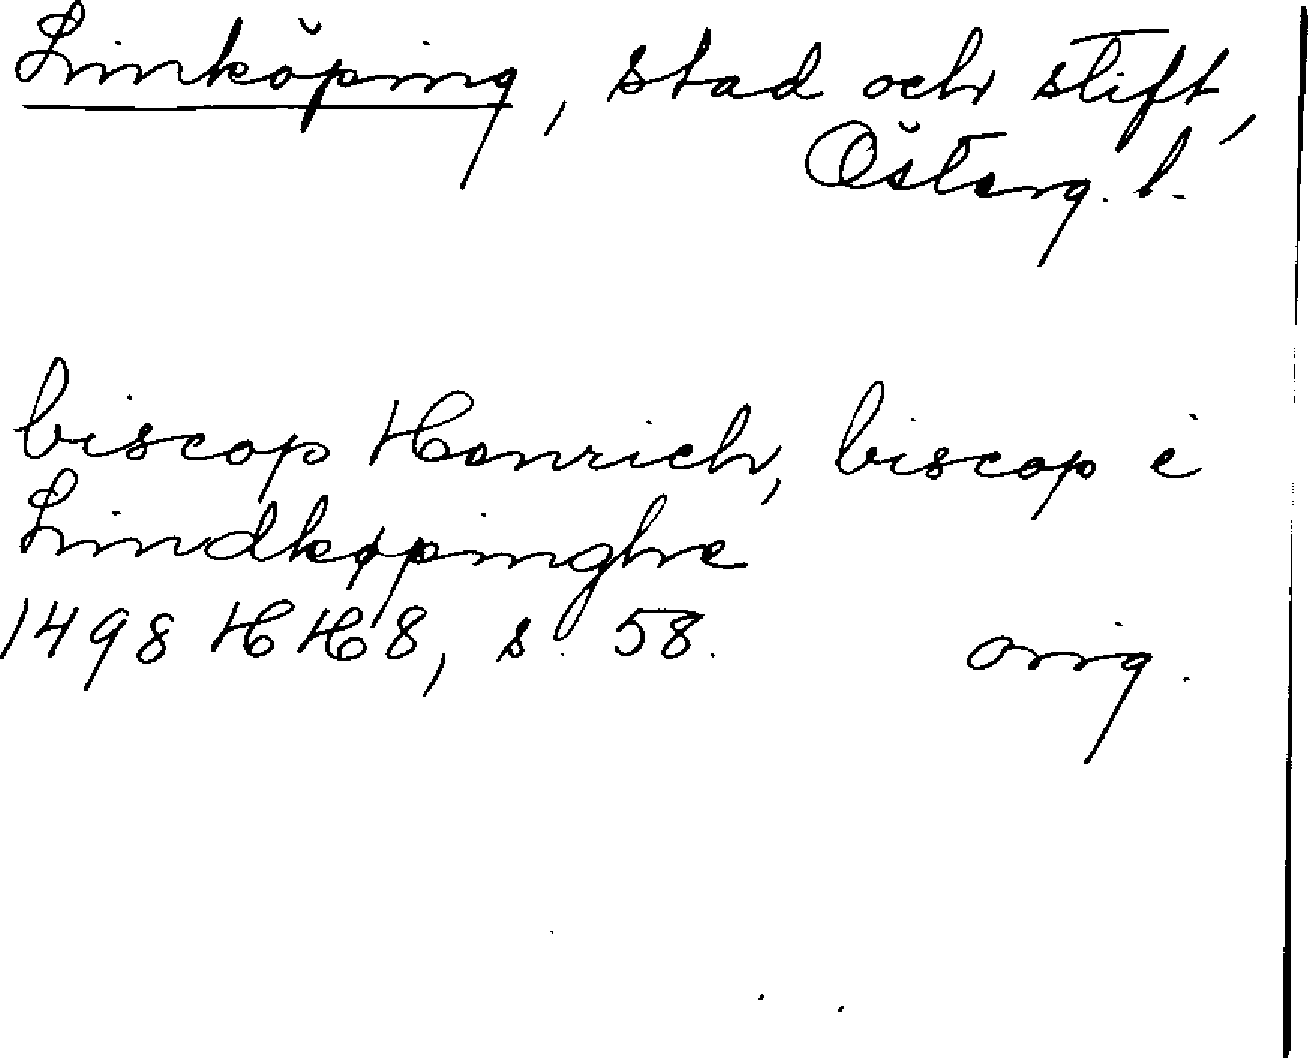 Linköping, stad och stift,
Österg. l.
biscop Henrich, biscop i
Lindkøpinghe
1498 HH8, s. 58. orig.